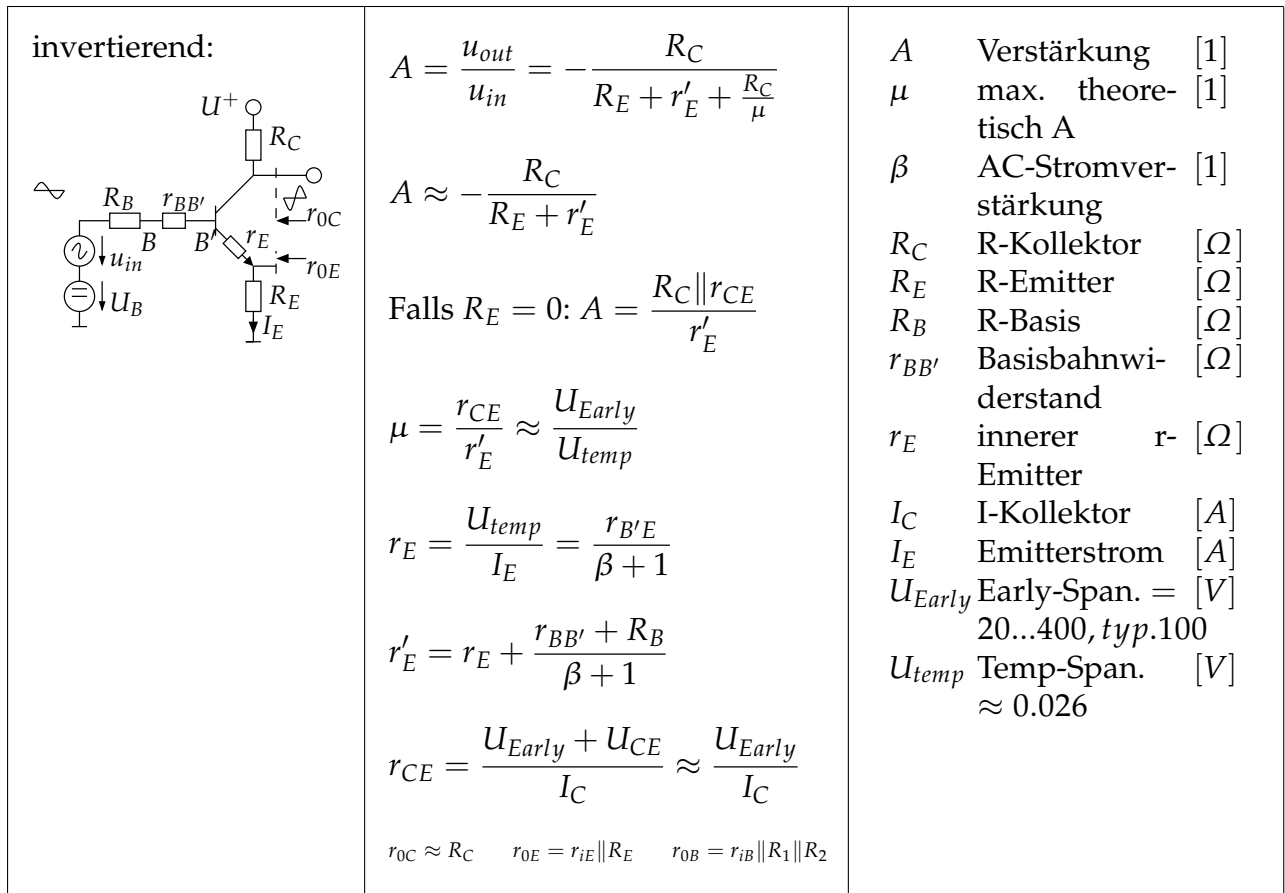 invertierend:
U⁺
R_C
R_B r_{BB'}
r_{0C}
B B' r_E
u_{in} r_{0E}
U_B R_E
I_E
A = \frac{u_{out}}{u_{in}} = -\frac{R_C}{R_E + r'_E + \frac{R_C}{μ}}
A ≈ -\frac{R_C}{R_E + r'_E}
Falls R_E = 0: A = \frac{R_C∥r_{CE}}{r'_E}
μ = \frac{r_{CE}}{r'_E} ≈ \frac{U_{Early}}{U_{temp}}
r_E = \frac{U_{temp}}{I_E} = \frac{r_{B'E}}{β + 1}
r'_E = r_E + \frac{r_{BB'} + R_B}{β + 1}
r_{CE} = \frac{U_{Early} + U_{CE}}{I_C} ≈ \frac{U_{Early}}{I_C}
r_{0C} ≈ R_C r_{0E} = r_{iE}∥R_E r_{0B} = r_{iB}∥R_1∥R_2
A Verstärkung [1]
μ max. theore- [1]
tisch A
β AC-Stromver- [1]
stärkung
R_C R-Kollektor [Ω]
R_E R-Emitter [Ω]
R_B R-Basis [Ω]
r_{BB'} Basisbahnwi- [Ω]
derstand
r_E innerer r- [Ω]
Emitter
I_C I-Kollektor [A]
I_E Emitterstrom [A]
U_{Early} Early-Span. = [V]
20...400, typ.100
U_{temp} Temp-Span. [V]
≈ 0.026